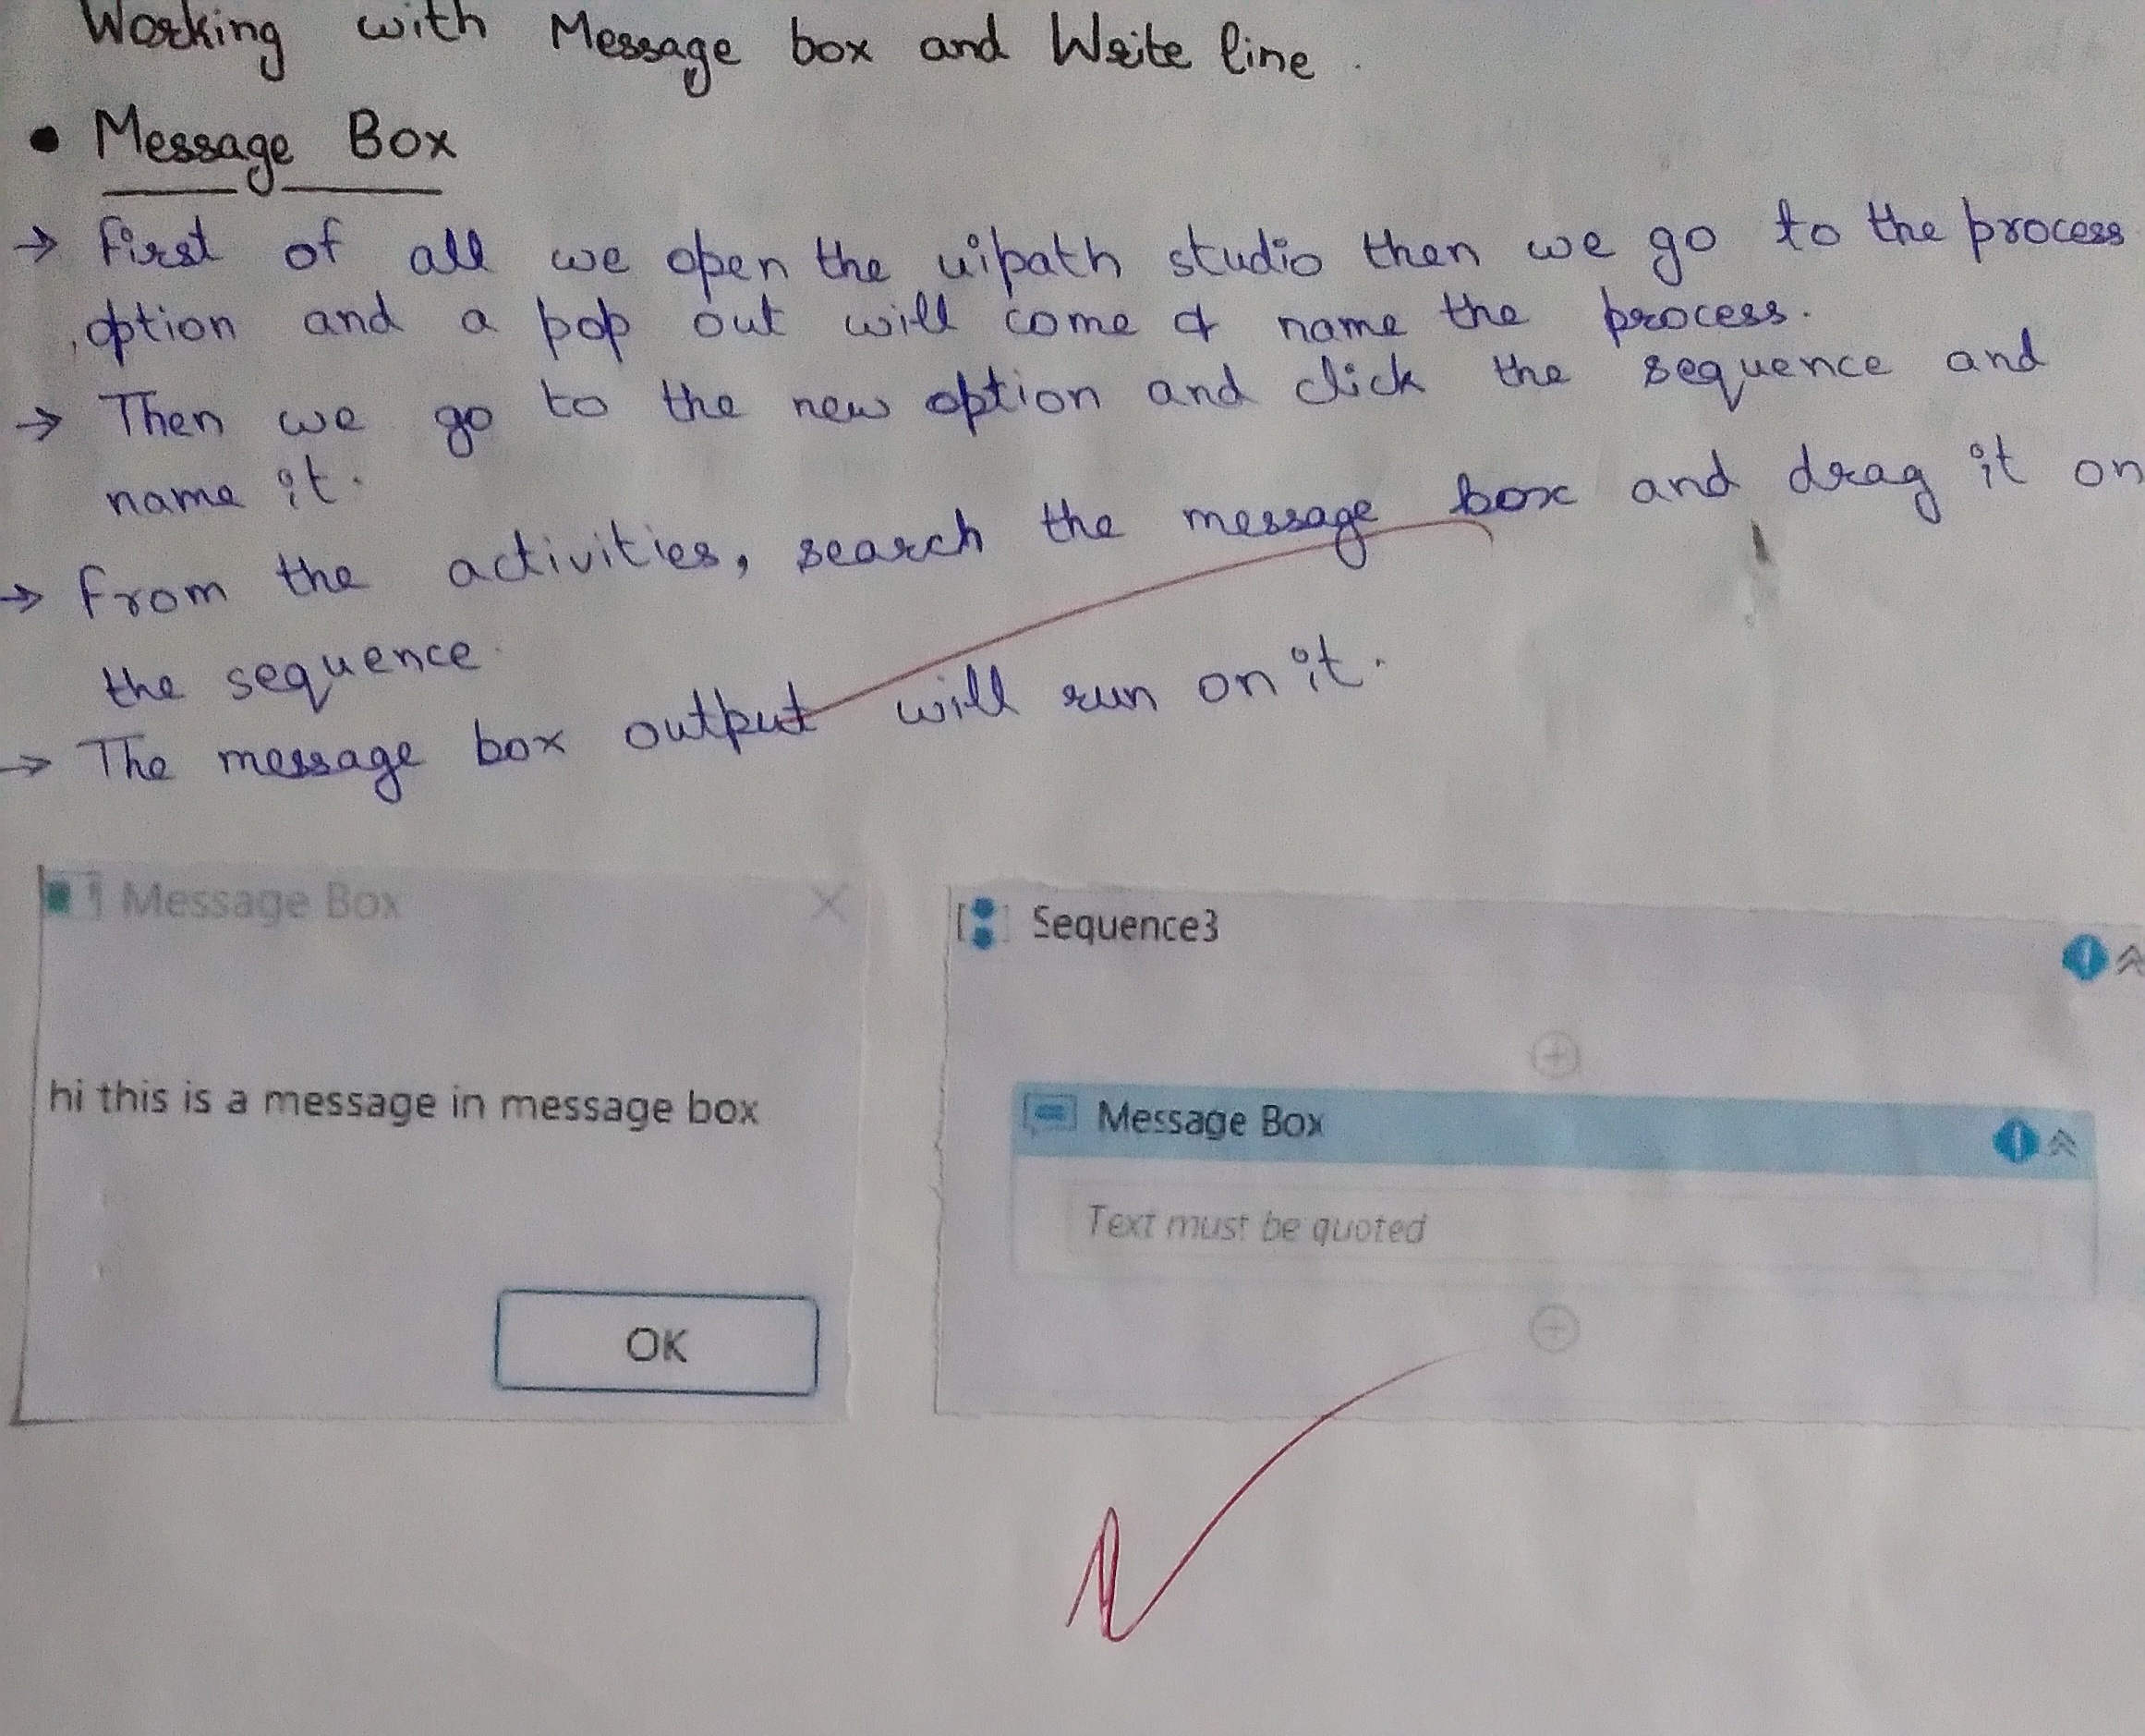 Working with Message box and Write line.
• Message Box
→ First of all we open the uipath studio then we go to the process
option and a pop out will come & name the process.
→ Then we go to the new option and click the sequence and
name it.
→ From the activities, search the message box and drag it on
the sequence.
→ The message box output will run on it.
Message Box
hi this is a message in message box
OK
Sequence3
Message Box
Text must be quoted